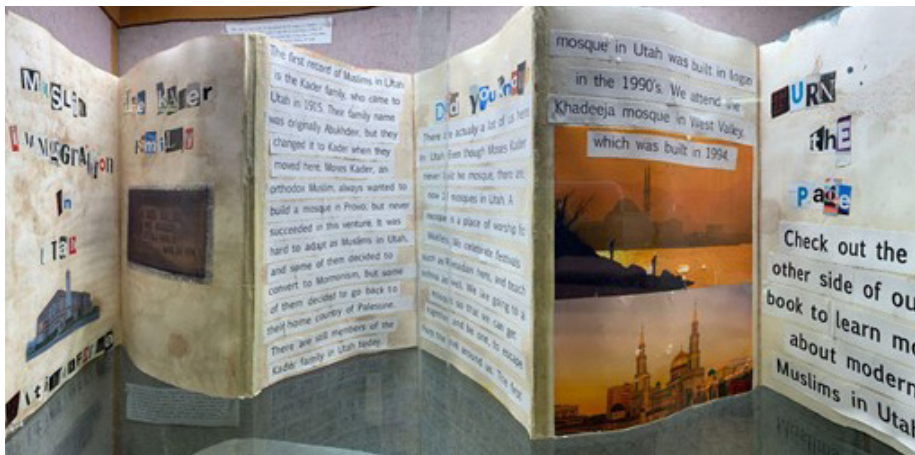 Muslim
Immigration
In
Utah
The Kader
Family
The first record of Muslims in Utah
is the Kader family, who came to
Utah in 1915. Their family name
was originally Abukhder, but they
changed it to Kader when they
moved here. Moses Kader, an
orthodox Muslim, always wanted to
build a mosque in Provo, but never
succeeded in this venture. It was
hard to adapt as Muslims in Utah,
and some of them decided to
convert to Mormonism, but some
of them decided to go back to
their home country of Palestine.
There are still members of the
Kader family in Utah today.
Did You Know
There are actually a lot of us here
in Utah. Even though Moses Kader
never built his mosque, there are
now mosques in Utah. A
mosque is a place of worship for
Muslims. We celebrate festivals
such as Ramadan here, and teach
as well. We like going to a
mosque so that we can get
together and be one, to escape
from the around us. The first
mosque in Utah was built in Logan
in the 1990's. We attend the
Khadeeja mosque in West Valley,
which was built in 1994.
TURN
thE
Page
Check out the
other side of ou
book to learn mo
about modern
Muslims in Utah